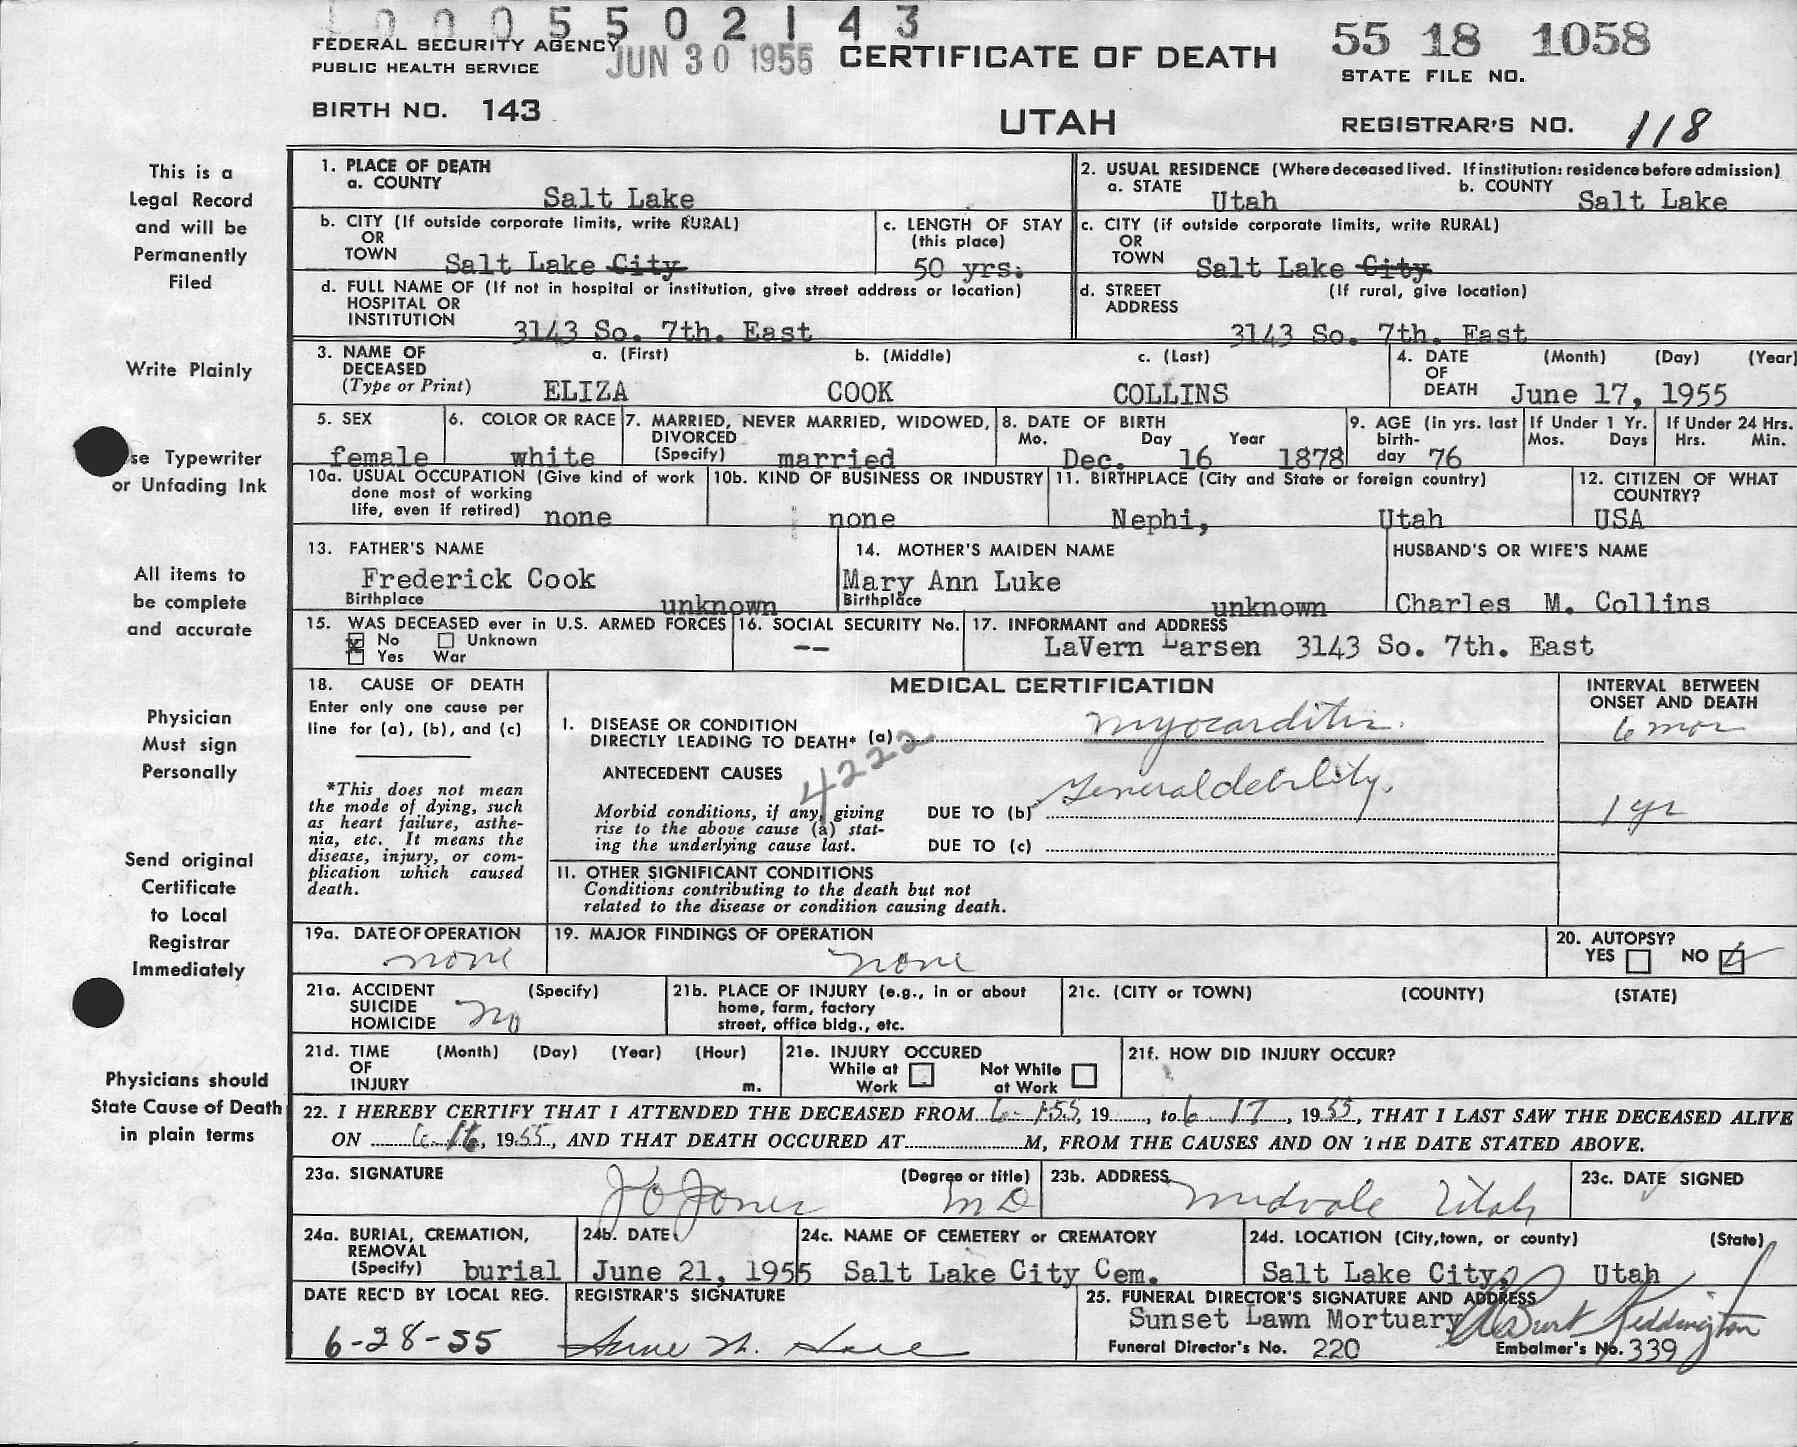 1 0 0 0 5 5 0 2 1 4 3
FEDERAL SECURITY AGENCY
PUBLIC HEALTH SERVICE
JUN 30 1955
CERTIFICATE OF DEATH
55 18 1058
STATE FILE NO.
BIRTH NO. 143
UTAH
REGISTRAR'S NO. 118
This is a
Legal Record
and will be
Permanently
Filed
Write Plainly
se Typewriter
or Unfading Ink
All items to
be complete
and accurate
Physician
Must sign
Personally
Send original
Certificate
to Local
Registrar
Immediately
Physicians should
State Cause of Death
in plain terms
1. PLACE OF DEATH
a. COUNTY
Salt Lake
2. USUAL RESIDENCE (Where deceased lived. If institution: residence before admission)
a. STATE Utah b. COUNTY Salt Lake
b. CITY (If outside corporate limits, write RURAL)
OR
TOWN Salt Lake City
c. LENGTH OF STAY
(this place)
50 yrs.
c. CITY (if outside corporate limits, write RURAL)
OR
TOWN Salt Lake City
d. FULL NAME OF (If not in hospital or institution, give street address or location)
HOSPITAL OR
INSTITUTION 3143 So. 7th. East
d. STREET (If rural, give location)
ADDRESS
3143 So. 7th. East
3. NAME OF
DECEASED
(Type or Print)
a. (First) b. (Middle) c. (Last)
ELIZA COOK COLLINS
4. DATE (Month) (Day) (Year)
OF
DEATH June 17, 1955
5. SEX
female
6. COLOR OR RACE
white
7. MARRIED, NEVER MARRIED, WIDOWED,
DIVORCED
(Specify) married
8. DATE OF BIRTH
Mo. Day Year
Dec. 16 1878
9. AGE (in yrs. last
birth-
day 76
If Under 1 Yr.
Mos. Days
If Under 24 Hrs.
Hrs. Min.
10a. USUAL OCCUPATION (Give kind of work
done most of working
life, even if retired) none
10b. KIND OF BUSINESS OR INDUSTRY
none
11. BIRTHPLACE (City and State or foreign country)
Nephi, Utah
12. CITIZEN OF WHAT
COUNTRY?
USA
13. FATHER'S NAME
Frederick Cook
Birthplace unknown
14. MOTHER'S MAIDEN NAME
Mary Ann Luke
Birthplace unknown
HUSBAND'S OR WIFE'S NAME
Charles M. Collins
15. WAS DECEASED ever in U.S. ARMED FORCES
No Unknown
Yes War
16. SOCIAL SECURITY No.
--
17. INFORMANT and ADDRESS
LaVern Larsen 3143 So. 7th. East
18. CAUSE OF DEATH
Enter only one cause per
line for (a), (b), and (c)
*This does not mean
the mode of dying, such
as heart failure, asthe-
nia, etc. It means the
disease, injury, or com-
plication which caused
death.
MEDICAL CERTIFICATION
INTERVAL BETWEEN
ONSET AND DEATH
I. DISEASE OR CONDITION
DIRECTLY LEADING TO DEATH* (a) myocarditis. 6 mos
4222
ANTECEDENT CAUSES
Morbid conditions, if any, giving
rise to the above cause (a) stat-
ing the underlying cause last.
DUE TO (b) General debility. 1 yr
DUE TO (c)
II. OTHER SIGNIFICANT CONDITIONS
Conditions contributing to the death but not
related to the disease or condition causing death.
19a. DATE OF OPERATION
none
19. MAJOR FINDINGS OF OPERATION
none
20. AUTOPSY?
YES NO
21a. ACCIDENT (Specify)
SUICIDE
HOMICIDE no
21b. PLACE OF INJURY (e.g., in or about
home, farm, factory
street, office bldg., etc.
21c. (CITY or TOWN) (COUNTY) (STATE)
21d. TIME (Month) (Day) (Year) (Hour)
OF
INJURY m.
21e. INJURY OCCURED
While at Work Not While at Work
21f. HOW DID INJURY OCCUR?
22. I HEREBY CERTIFY THAT I ATTENDED THE DECEASED FROM 6-1-55, 19....., to 6 17, 1955, THAT I LAST SAW THE DECEASED ALIVE
ON 6-16, 1955, AND THAT DEATH OCCURED AT M, FROM THE CAUSES AND ON THE DATE STATED ABOVE.
23a. SIGNATURE (Degree or title)
J O Jones MD
23b. ADDRESS
Midvale Utah
23c. DATE SIGNED
24a. BURIAL, CREMATION,
REMOVAL
(Specify) burial
24b. DATE
June 21, 1955
24c. NAME OF CEMETERY or CREMATORY
Salt Lake City Cem.
24d. LOCATION (City, town, or county) (State)
Salt Lake City, Utah
DATE REC'D BY LOCAL REG.
6-28-55
REGISTRAR'S SIGNATURE
25. FUNERAL DIRECTOR'S SIGNATURE AND ADDRESS
Sunset Lawn Mortuary
Funeral Director's No. 220
Embalmer's No. 339